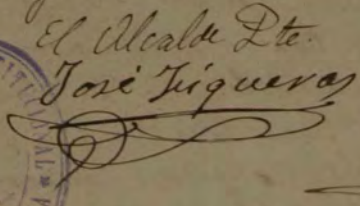 El Alcalde Pte.
José Fígueras